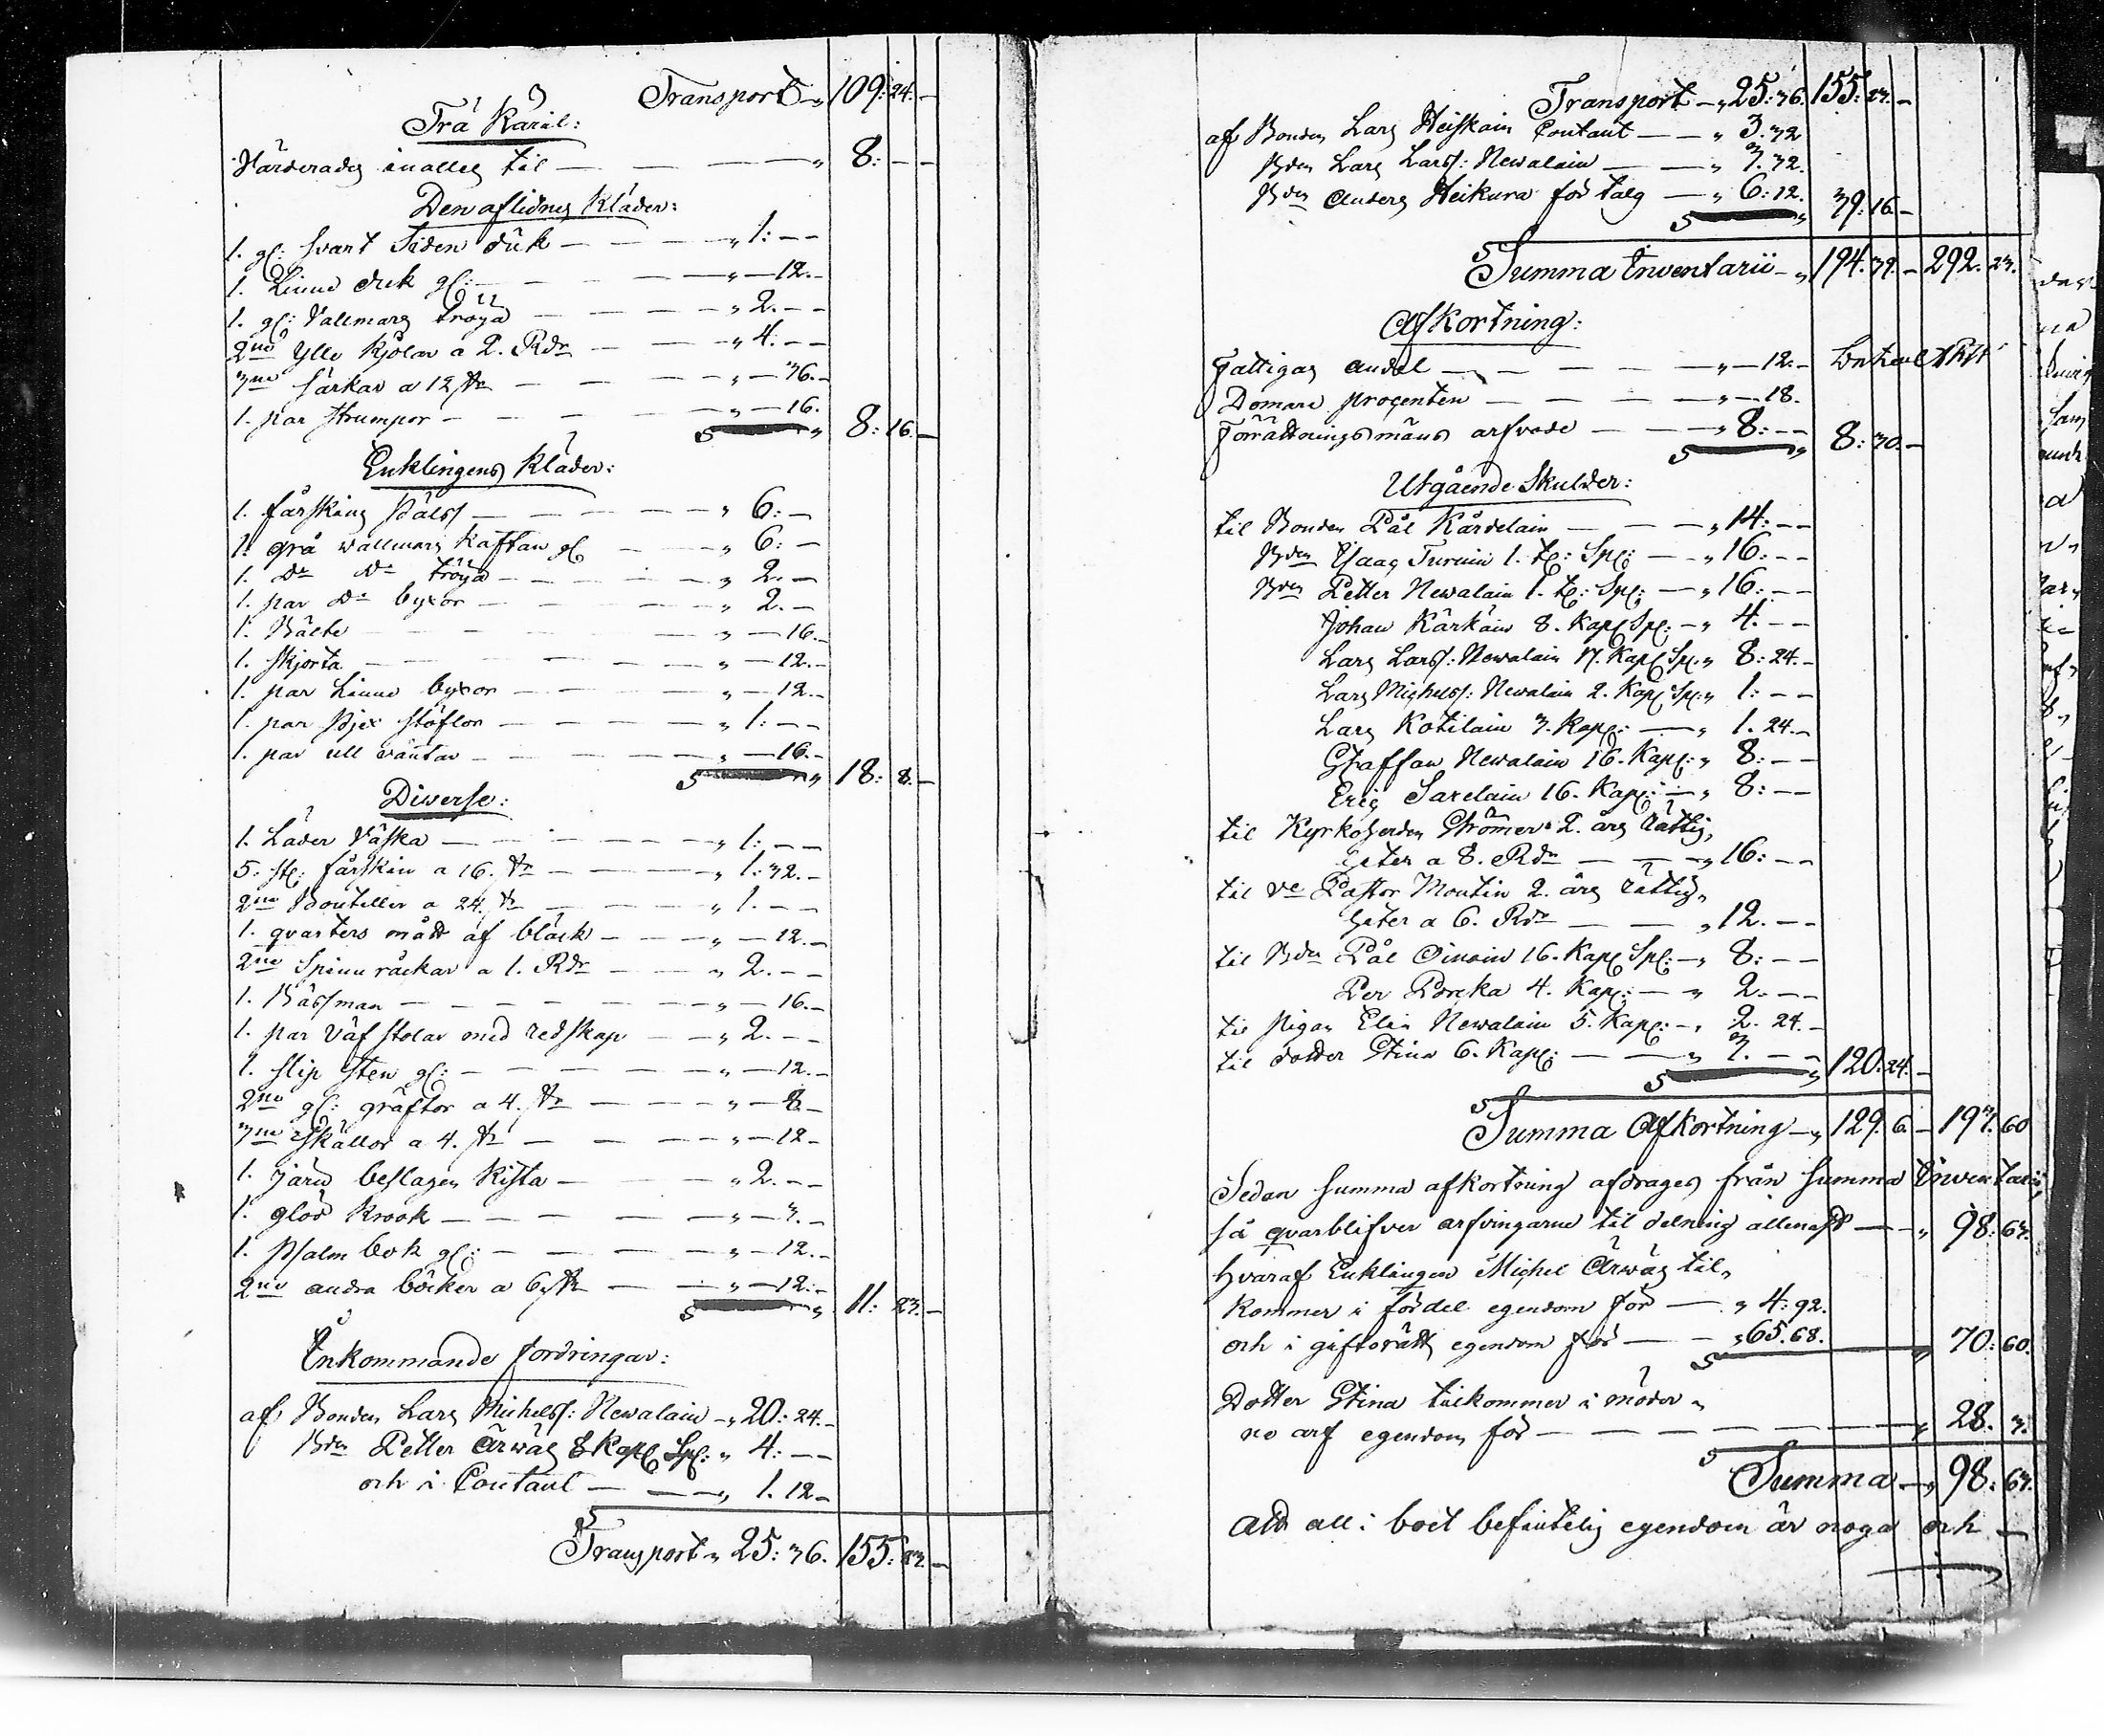 Transport „ 109: 24. –
Trä Käril:
Värderades inalles til — „ 8: – –
Den aflidnes Kläder:
1. gl: svart Siden duk — „ 1: – –
1. Linne duk gl: — „ – 12. –
1. gl: Vallmars tröya — „ 2. – –
2ne Ylle Kjolar a 2. Rdr — „ 4: – –
3ne särkar a 12 s – „ – 36. –
1. par strumpor — „ – 16. 8: 16. –
Enklingens Kläder:
1. fårskins Päls — „ 6: –
1. grå wallmars Kaftan gl — „ 6: –
1. Do Do tröya — „ 2. –
1. par Do byxor — „ 2. –
1. Bälte — „ – 16. –
1. Skjorta — „ – 12. –
1. par Linne byxor — „ – 12. –
1. par Pjex stöflor — „ 1: – –
1. par ull vantar — „ – 16. – 18: 8. –
Diverse:
1. Läder Väska — „ 1: – –
5. st: fårskin a 16. s — „ 1: 32. –
2ne Bouteller a 24. s — „ 1. – –
1. qvarters mått af bläck — „ – 12. –
2ne Spinn råckar a 1. Rdr — „ 2. – –
1. Bässman — „ – 16. –
1. par Väf stolar med redskap — „ 2. – –
1. slip sten gl: — „ – 12. –
2ne gl: gräftor a 4. s — „ – 8 –
3ne Skällor a 4. s — „ – 12 –
1. järn beslagen Kista — „ 2. – –
1. glöd Krook — „ – 3. –
1. Psalm bok gl: — „ – 12. –
2ne andra böcker a 6 s — „ – 12. – 11: 23. –
Inkommande fordringar:
af Bonden Lars Michelss: Newalain – „ 20: 24. –
Bden Petter Ärwäs 8 Kap Sp: „ 4: – –
och i Contant — „ 1. 12 –
Transport „ 25: 36. 155: 23. –
Transport – „ 25: 36. 155: 23. –
af Bonden Lars Heiskain Contant — „ 3. 32
Bden Lars Larss: Newalain — „ 3. 32.
Bden Anders Heikura för talg — „ 6: 12. 39: 16 –
Summa Inventarii – „ 194. 39. – 292. 23.
Afkortning:
Fattigas andel — „ – 12. –
Domare procenten — „ – 18.
Förrättningsmäns arfvode — „ 8: – – 8: 30. –
Utgående Skulder:
til Bonden Pål Kärdelain — „ 14: – –
Bden Isaac Turuin 1. t: Sp: — „ 16: – –
Bden Petter Newalain 1. t: Sp: — „ 16: – –
Johan Kärkäin 8. Kap Sp: – „ 4. – –
Lars Larss: Newalain 17. Kap Sp: „ 8: 24. –
Lars Michelss: Newalain 2. Kap Sp: „ 1: – –
Lars Kotilain 3. Kap: — „ 1. 24. –
Staffan Newalain 16. Kap: „ 8: – –
Eric Sarelain 16. Kap: – „ 8: – –
til Kyrkoherden Strömer 2. års rättig„
heter a 8. Rdr — „ 16: – –
til vc Pastor Montin 2. års rättig„
heter a 6. Rdr — „ 12. – –
til Bden Pål Oinoin 16. Kap Sp: – „ 8: – –
Per Porcka 4. Kap: — „ 2. – –
til pigan Elin Newalain 5. Kap: – „ 2. 24. –
til dotter Stina 6. Kap: — „ 3. – – 120: 24. –
Summa Afkortning – „ 129. 6. – 193. 60
Sedan Summa afkortning afdrages från Summa Inventarii,
så qvarblifver arfvingarne til delning allenast — „ 98: 63.
hvaraf Enklingen Michel Ärwäs til„
kommer i fördel egendom för — „ 4: 92.
och i giftorätts egendom för — „ 65. 68. „ 70: 60.
Dotter Stina tilkommer i möder„
ne arf egendom för — „ 28. 3.
Summa – „ 98: 63.
Att all i boet befintelig egendom är noga och –